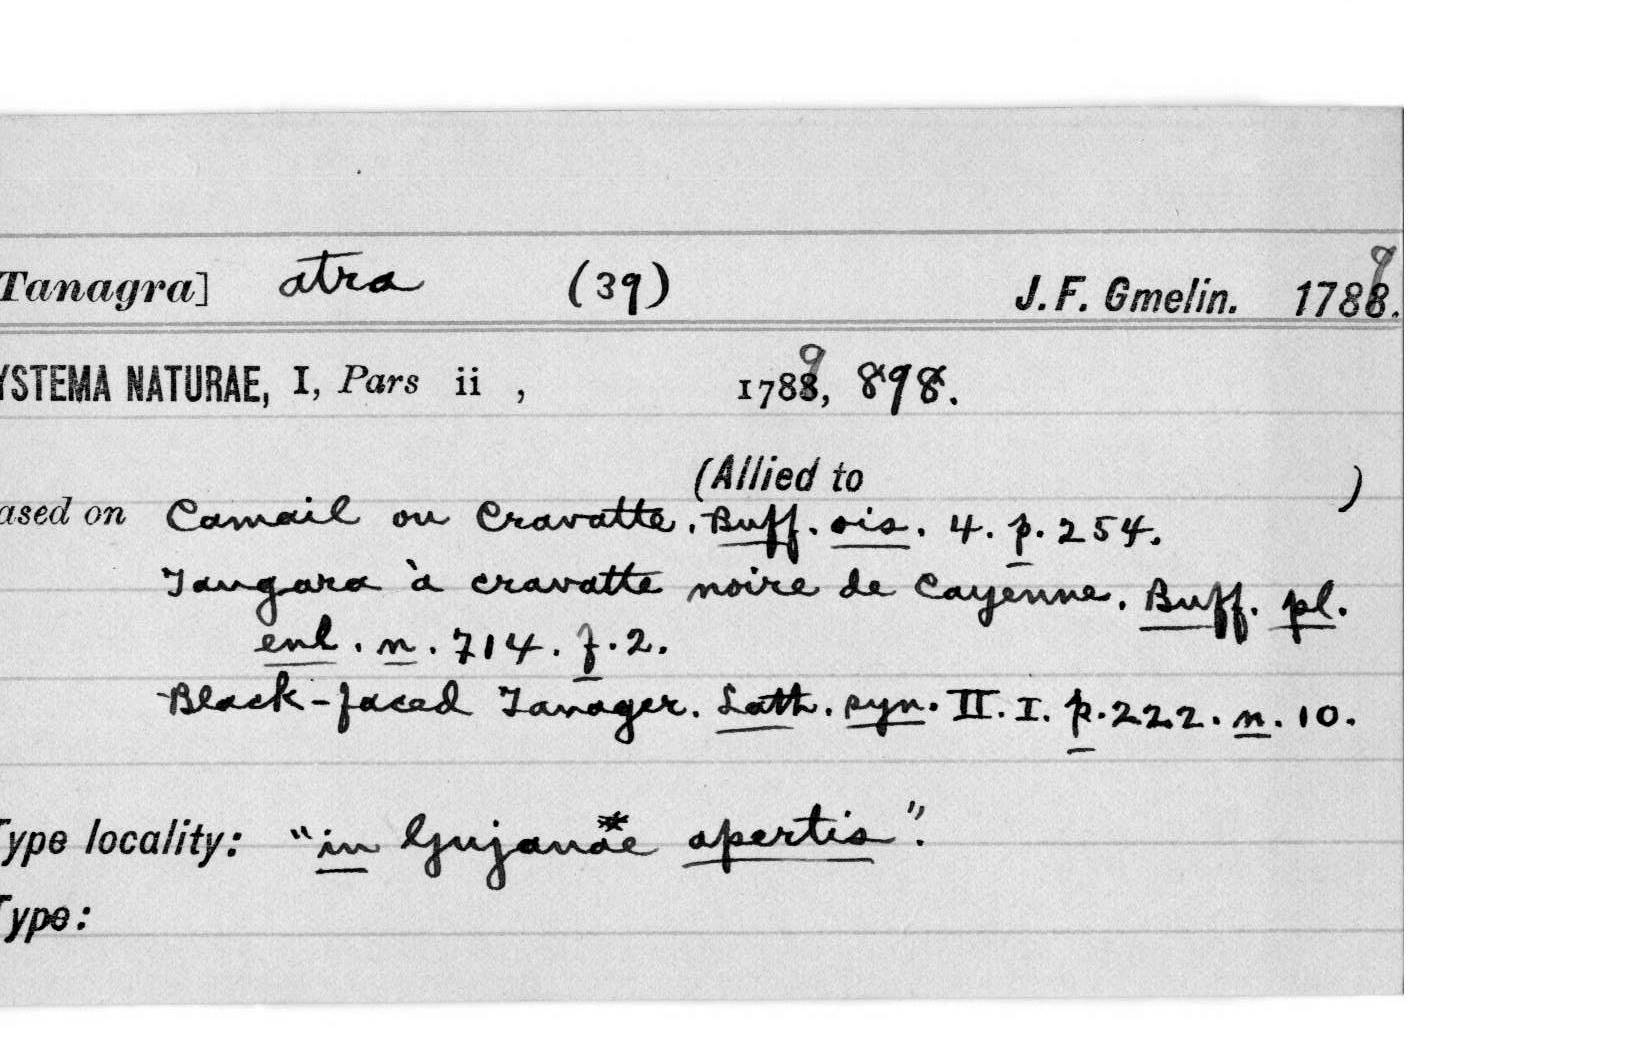 Tanagra] atra (39) J. F. Gmelin. 1788. 9
YSTEMA NATURAE, I, Pars ii , 1788, 9 898.
(Allied to )
ased on Camail ou Cravatte. Buff. ois. 4. p. 254.
Tangara à cravatte noire de Cayenne. Buff. pl.
enl. n. 714. f. 2.
Black-faced Tanager. Lath. syn. II. I. p. 222. n. 10.
Type locality: "in Gujanae apertis".
Type: